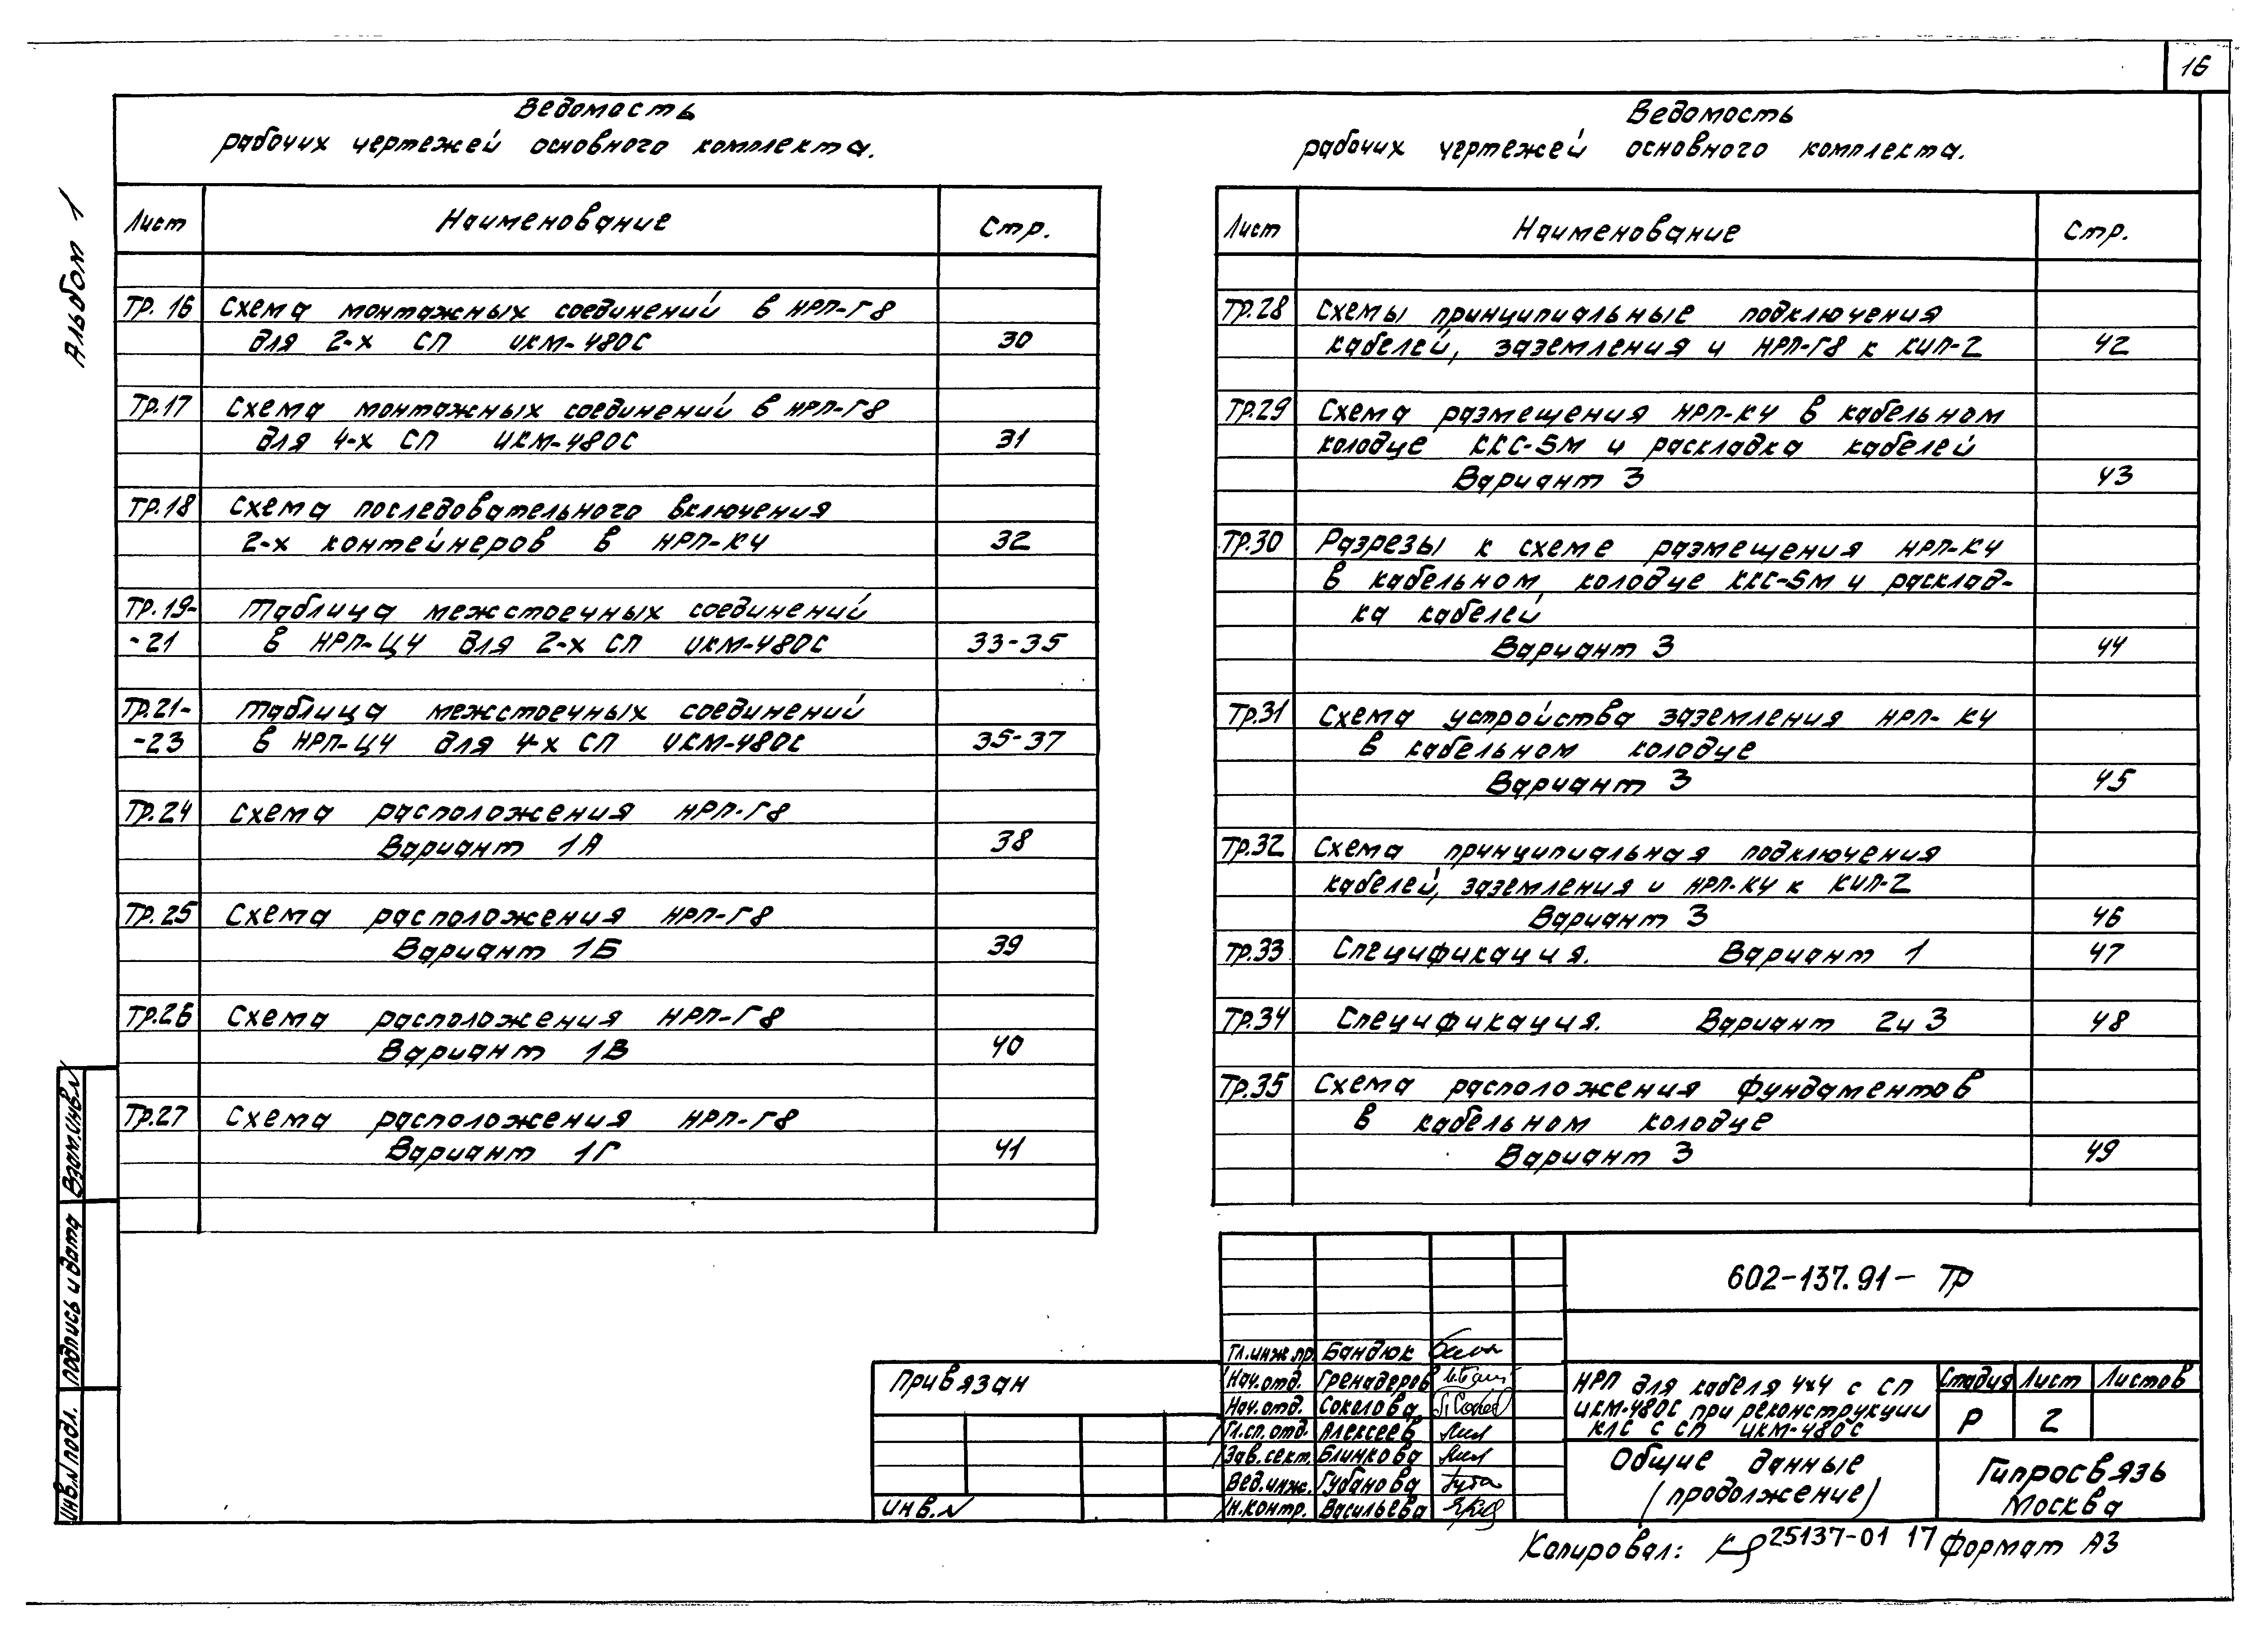 16
Альбом 1
Ведомость
рабочих чертежей основного комплекта.
Лист Наименование Стр.
ТР.16 Схема монтажных соединений в НРП-Г8
для 2-х СП ИКМ-480С 30
ТР.17 Схема монтажных соединений в НРП-Г8
для 4-х СП ИКМ-480С 31
ТР.18 Схема последовательного включения
2-х контейнеров в НРП-К4 32
ТР.19- Таблица межстоечных соединений
-21 в НРП-Ц4 для 2-х СП ИКМ-480С 33-35
ТР.21- Таблица межстоечных соединений
-23 в НРП-Ц4 для 4-х СП ИКМ-480С 35-37
ТР.24 Схема расположения НРП-Г8
Вариант 1А 38
ТР.25 Схема расположения НРП-Г8
Вариант 1Б 39
ТР.26 Схема расположения НРП-Г8
Вариант 1В 40
ТР.27 Схема расположения НРП-Г8
Вариант 1Г 41
Ведомость
рабочих чертежей основного комплекта.
Лист Наименование Стр.
ТР.28 Схемы принципиальные подключения
кабелей, заземления и НРП-Г8 к КИП-2 42
ТР.29 Схема размещения НРП-К4 в кабельном
колодце ККС-5М и раскладка кабелей
Вариант 3 43
ТР.30 Разрезы к схеме размещения НРП-К4
в кабельном колодце ККС-5М и расклад-
ка кабелей
Вариант 3 44
ТР.31 Схема устройства заземления НРП-К4
в кабельном колодце
Вариант 3 45
ТР.32 Схема принципиальная подключения
кабелей, заземления и НРП-К4 к КИП-2
Вариант 3 46
ТР.33 Спецификация. Вариант 1 47
ТР.34 Спецификация. Вариант 2 и 3 48
ТР.35 Схема расположения фундаментов
в кабельном колодце
Вариант 3 49
Взам.инв.N
Подпись и дата
Инв.N подл.
Привязан
Инв.N
602-137.91- ТР
Гл.инж.пр. Бандюк
Нач.отд. Гренадеров
Нач.отд. Соколова
Гл.сп.отд. Алексеев
Зав.сект. Блинкова
Вед.инж. Губанова
Н.контр. Васильева
НРП для кабеля 4х4 с СП
ИКМ-480С при реконструкции
КЛС с СП ИКМ-480С
Стадия Лист Листов
Р 2
Общие данные
(продолжение)
Гипросвязь
Москва
Копировал: 25137-01 17 Формат А3